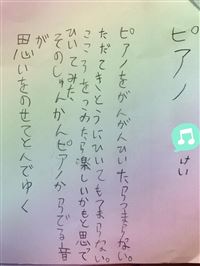 ピアノ
けい
ピアノをがんがんひいたらつまらない。
ただてきとうにひいてもつまらない。
こころをこめたら楽しいかもと思って
ひいてみた
そのしゅんかんピアノからでる音
が
思いをのせてとんでゆく